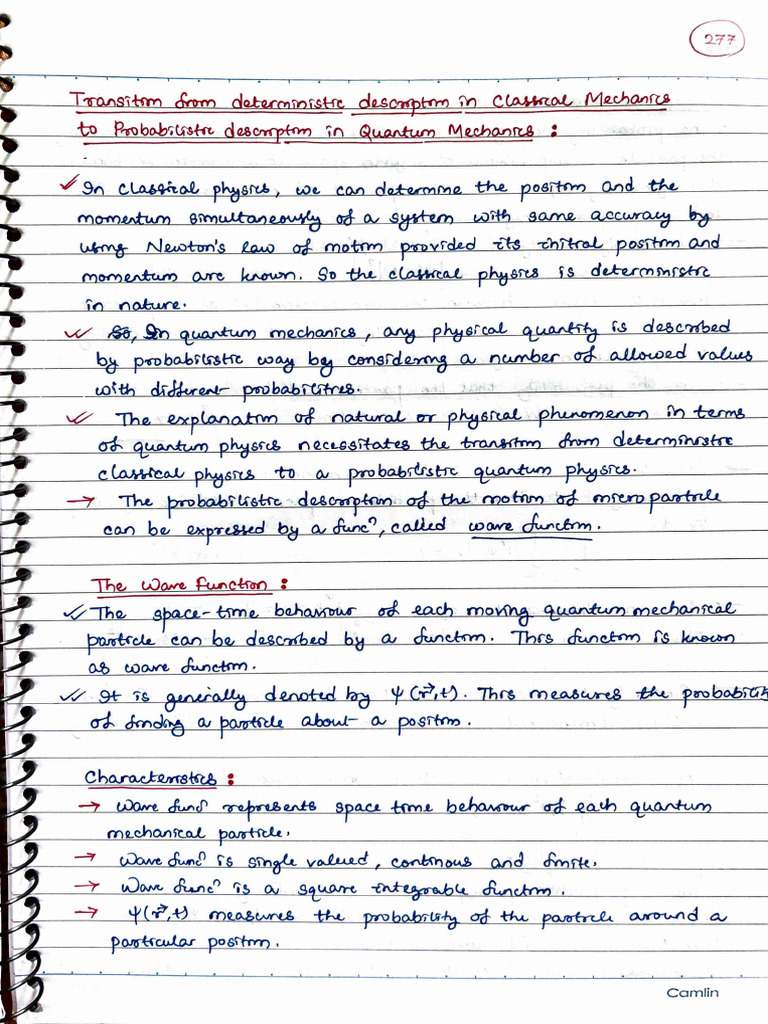 277
Transition from deterministic description in Classical Mechanics
to Probabilistic description in Quantum Mechanics :
In classical physics, we can determine the position and the
momentum simultaneously of a system with same accuracy by
using Newton's law of motion provided its initial position and
momentum are known. So the classical physics is deterministic
in nature.
So, In quantum mechanics, any physical quantity is described
by probabilistic way by considering a number of allowed values
with different probabilities.
The explanation of natural or physical phenomenon in terms
of quantum physics necessitates the transition from deterministic
classical physics to a probabilistic quantum physics.
→ The probabilistic description of the motion of micro particle
can be expressed by a funcⁿ, called wave function.
The Wave Function :
The space-time behaviour of each moving quantum mechanical
particle can be described by a function. This function is known
as wave function.
It is generally denoted by ψ(r⃗,t). This measures the probability
of finding a particle about a position.
Characteristics :
→ Wave funcⁿ represents space time behaviour of each quantum
mechanical particle.
→ Wave funcⁿ is single valued, continous and finite.
→ Wave funcⁿ is a square integrable function.
→ ψ(r⃗,t) measures the probability of the particle around a
particular position.
Camlin